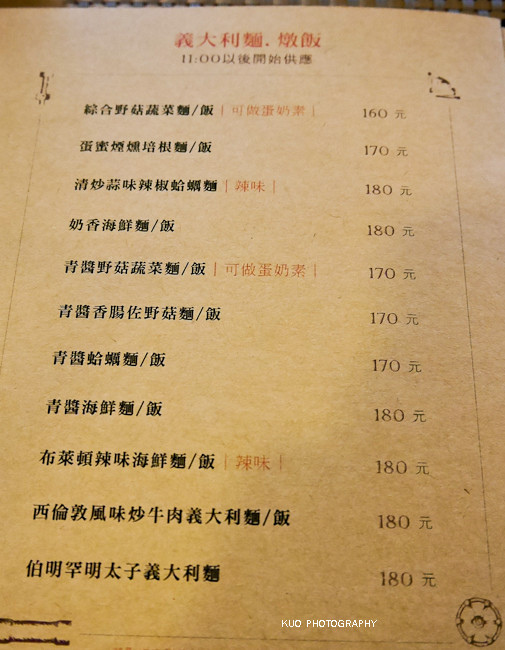 義大利麵.燉飯
11:00以後開始供應
綜合野菇蔬菜麵/飯|可做蛋奶素| 160 元
蛋蜜煙燻培根麵/飯 170 元
清炒蒜味辣椒蛤蠣麵|辣味| 180 元
奶香海鮮麵/飯 180 元
青醬野菇蔬菜麵/飯|可做蛋奶素| 170 元
青醬香腸佐野菇麵/飯 170 元
青醬蛤蠣麵/飯 170 元
青醬海鮮麵/飯 180 元
布萊頓辣味海鮮麵/飯|辣味| 180 元
西倫敦風味炒牛肉義大利麵/飯 180 元
伯明罕明太子義大利麵 180 元
KUO PHOTOGRAPHY